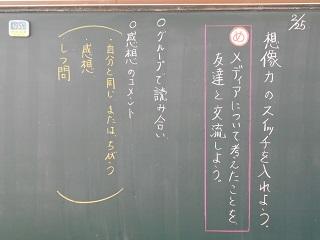 2/25
想像力のスイッチを入れよう。
め
メディアについて考えたことを、
友達と交流しよう。
○グループで読み合い
○感想のコメント
・自分と同じ、または、ちがう
・感想
しつ問